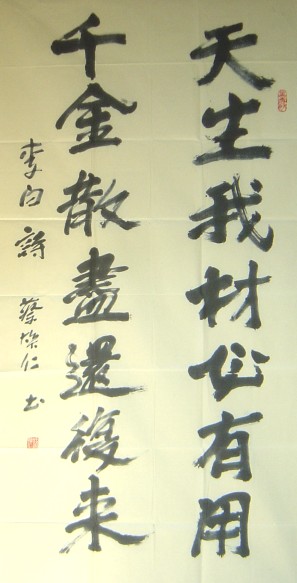 天生我材必有用
千金散盡還復来
李白詩 蔡榮仁书